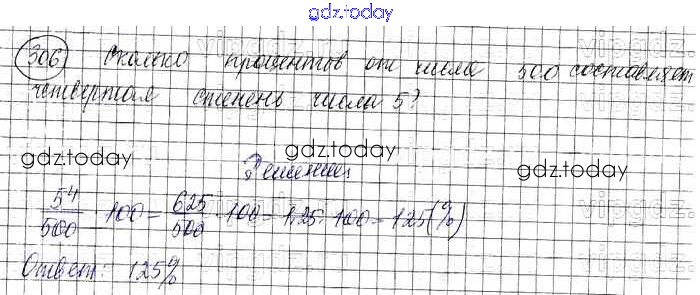 gdz.today
306 Сколько процентов от числа 500 составляет
четвертая степень числа 5?
gdz.today gdz.today gdz.today
Решение
5⁴/500 · 100 = 625/500 · 100 = 1,25 · 100 = 125(%)
Ответ: 125%